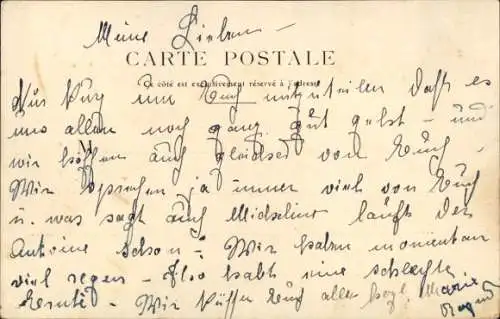 Meine Lieben -
CARTE POSTALE
Ce côté est exclusivement réservé à l'adresse
Nur kurz um Euch mitzuteilen daß es
uns allen noch ganz gut geht - und
wir hoffen auch gleiches von Euch -
M
Wir sprechen ja immer viel von Euch
u. was sagt auch Micheline läuft der
Antoine schon - Wir haben momentan
viel regen - Also habt eine schlechte
Ernte - Wir küssen Euch allen herzl. Marie